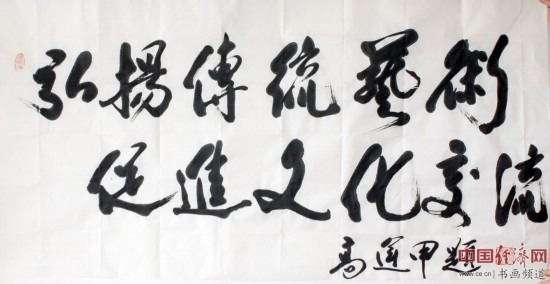 弘揚傳統藝術
促進文化交流
高運甲題
中国经济网
www.ce.cn | 书画频道